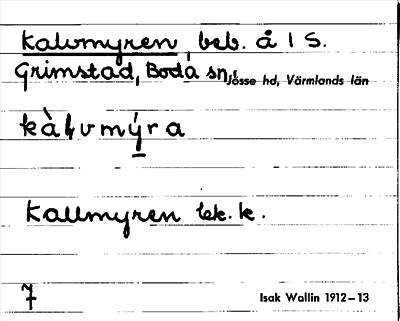 Kalvmyren, beb. å 1 S.
Grimstad, Boda sn,
Jösse hd, Värmlands län
Kallmyren ek. k.
7
Isak Wallin 1912–13